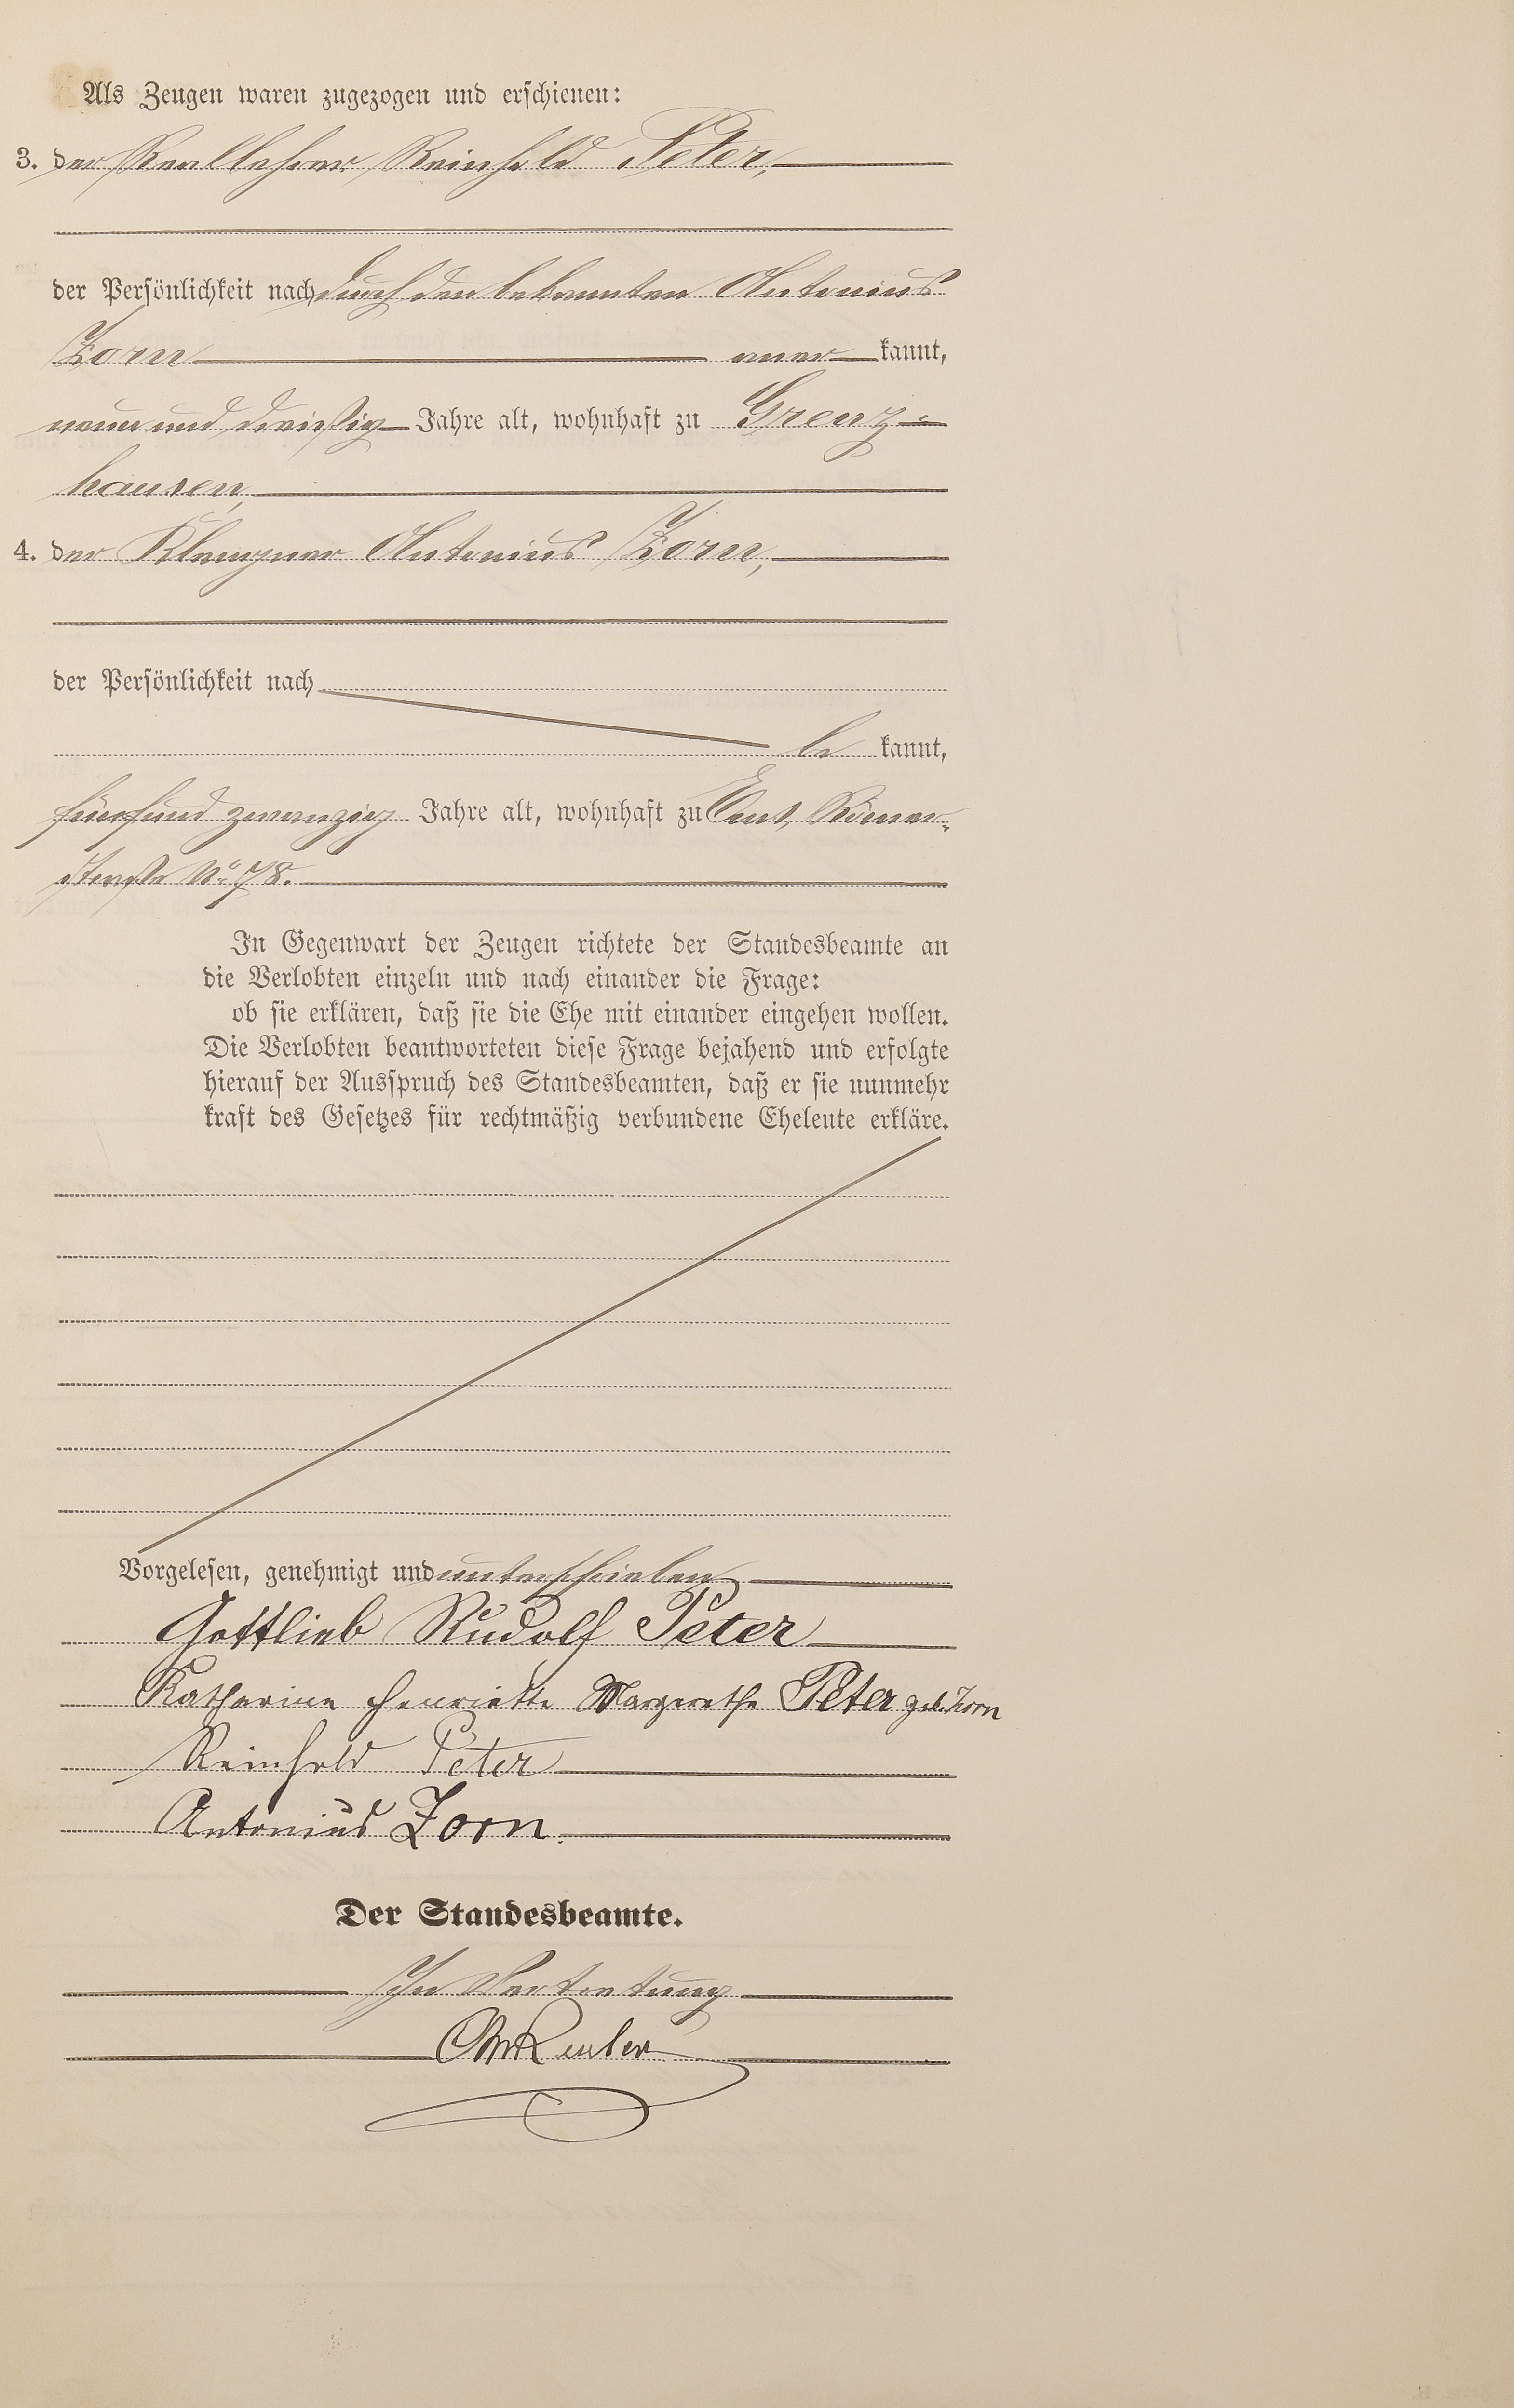 Als Zeugen waren zugezogen und erschienen:
3. der Reallehrer Reinhold Peter,
der Persönlichkeit nach durch den bekannten Antonius
Zorn aner kannt,
neun und dreißig Jahre alt, wohnhaft zu Grenz-
hausen,
4. der Klempner Antonius Zorn,
der Persönlichkeit nach
be kannt,
fünfund zwanzig Jahre alt, wohnhaft zu Ems, Römer-
straße No. 78.
In Gegenwart der Zeugen richtete der Standesbeamte an
die Verlobten einzeln und nach einander die Frage:
ob sie erklären, daß sie die Ehe mit einander eingehen wollen.
Die Verlobten beantworteten diese Frage bejahend und erfolgte
hierauf der Ausspruch des Standesbeamten, daß er sie nunmehr
kraft des Gesetzes für rechtmäßig verbundene Eheleute erkläre.
Vorgelesen, genehmigt und unterschrieben
Gottlieb Rudolf Peter
Katharine Henriette Margarethe Peter geb. Zorn
Reinhold Peter
Antonius Zorn.
Der Standesbeamte.
In Vertretung